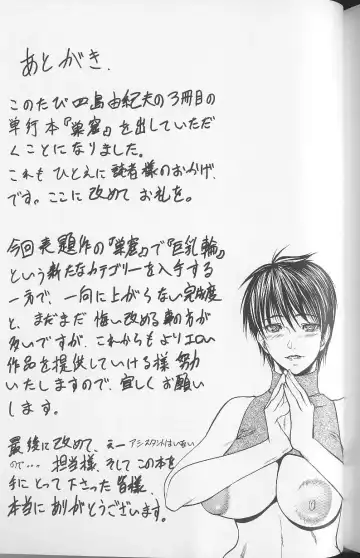 あとがき.
このたび四島由紀夫の3冊目の
単行本『巣窟』を出していただ
くことになりました。
これもひとえに読者様のおかげ
です。ここに改めてお礼を。
今回表題作の『巣窟』で『巨乳輪』
という新たなカテゴリーを入手する
一方で、一向に上がらない完成度
と、まだまだ悔い改める事の方が
多いですが、これからもよりエロい
作品を提供していける様努力
いたしますので、宜しくお願い
します。
最後に改めて、えーアシスタントはいない
ので…担当様、そしてこの本を
手にとって下さった皆様、
本当にありがとうございます。